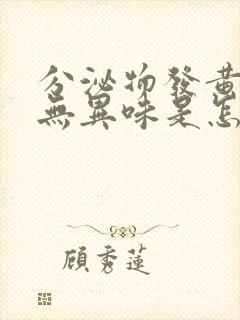 分泌物發黃
無異味是怎
顧秀蓮